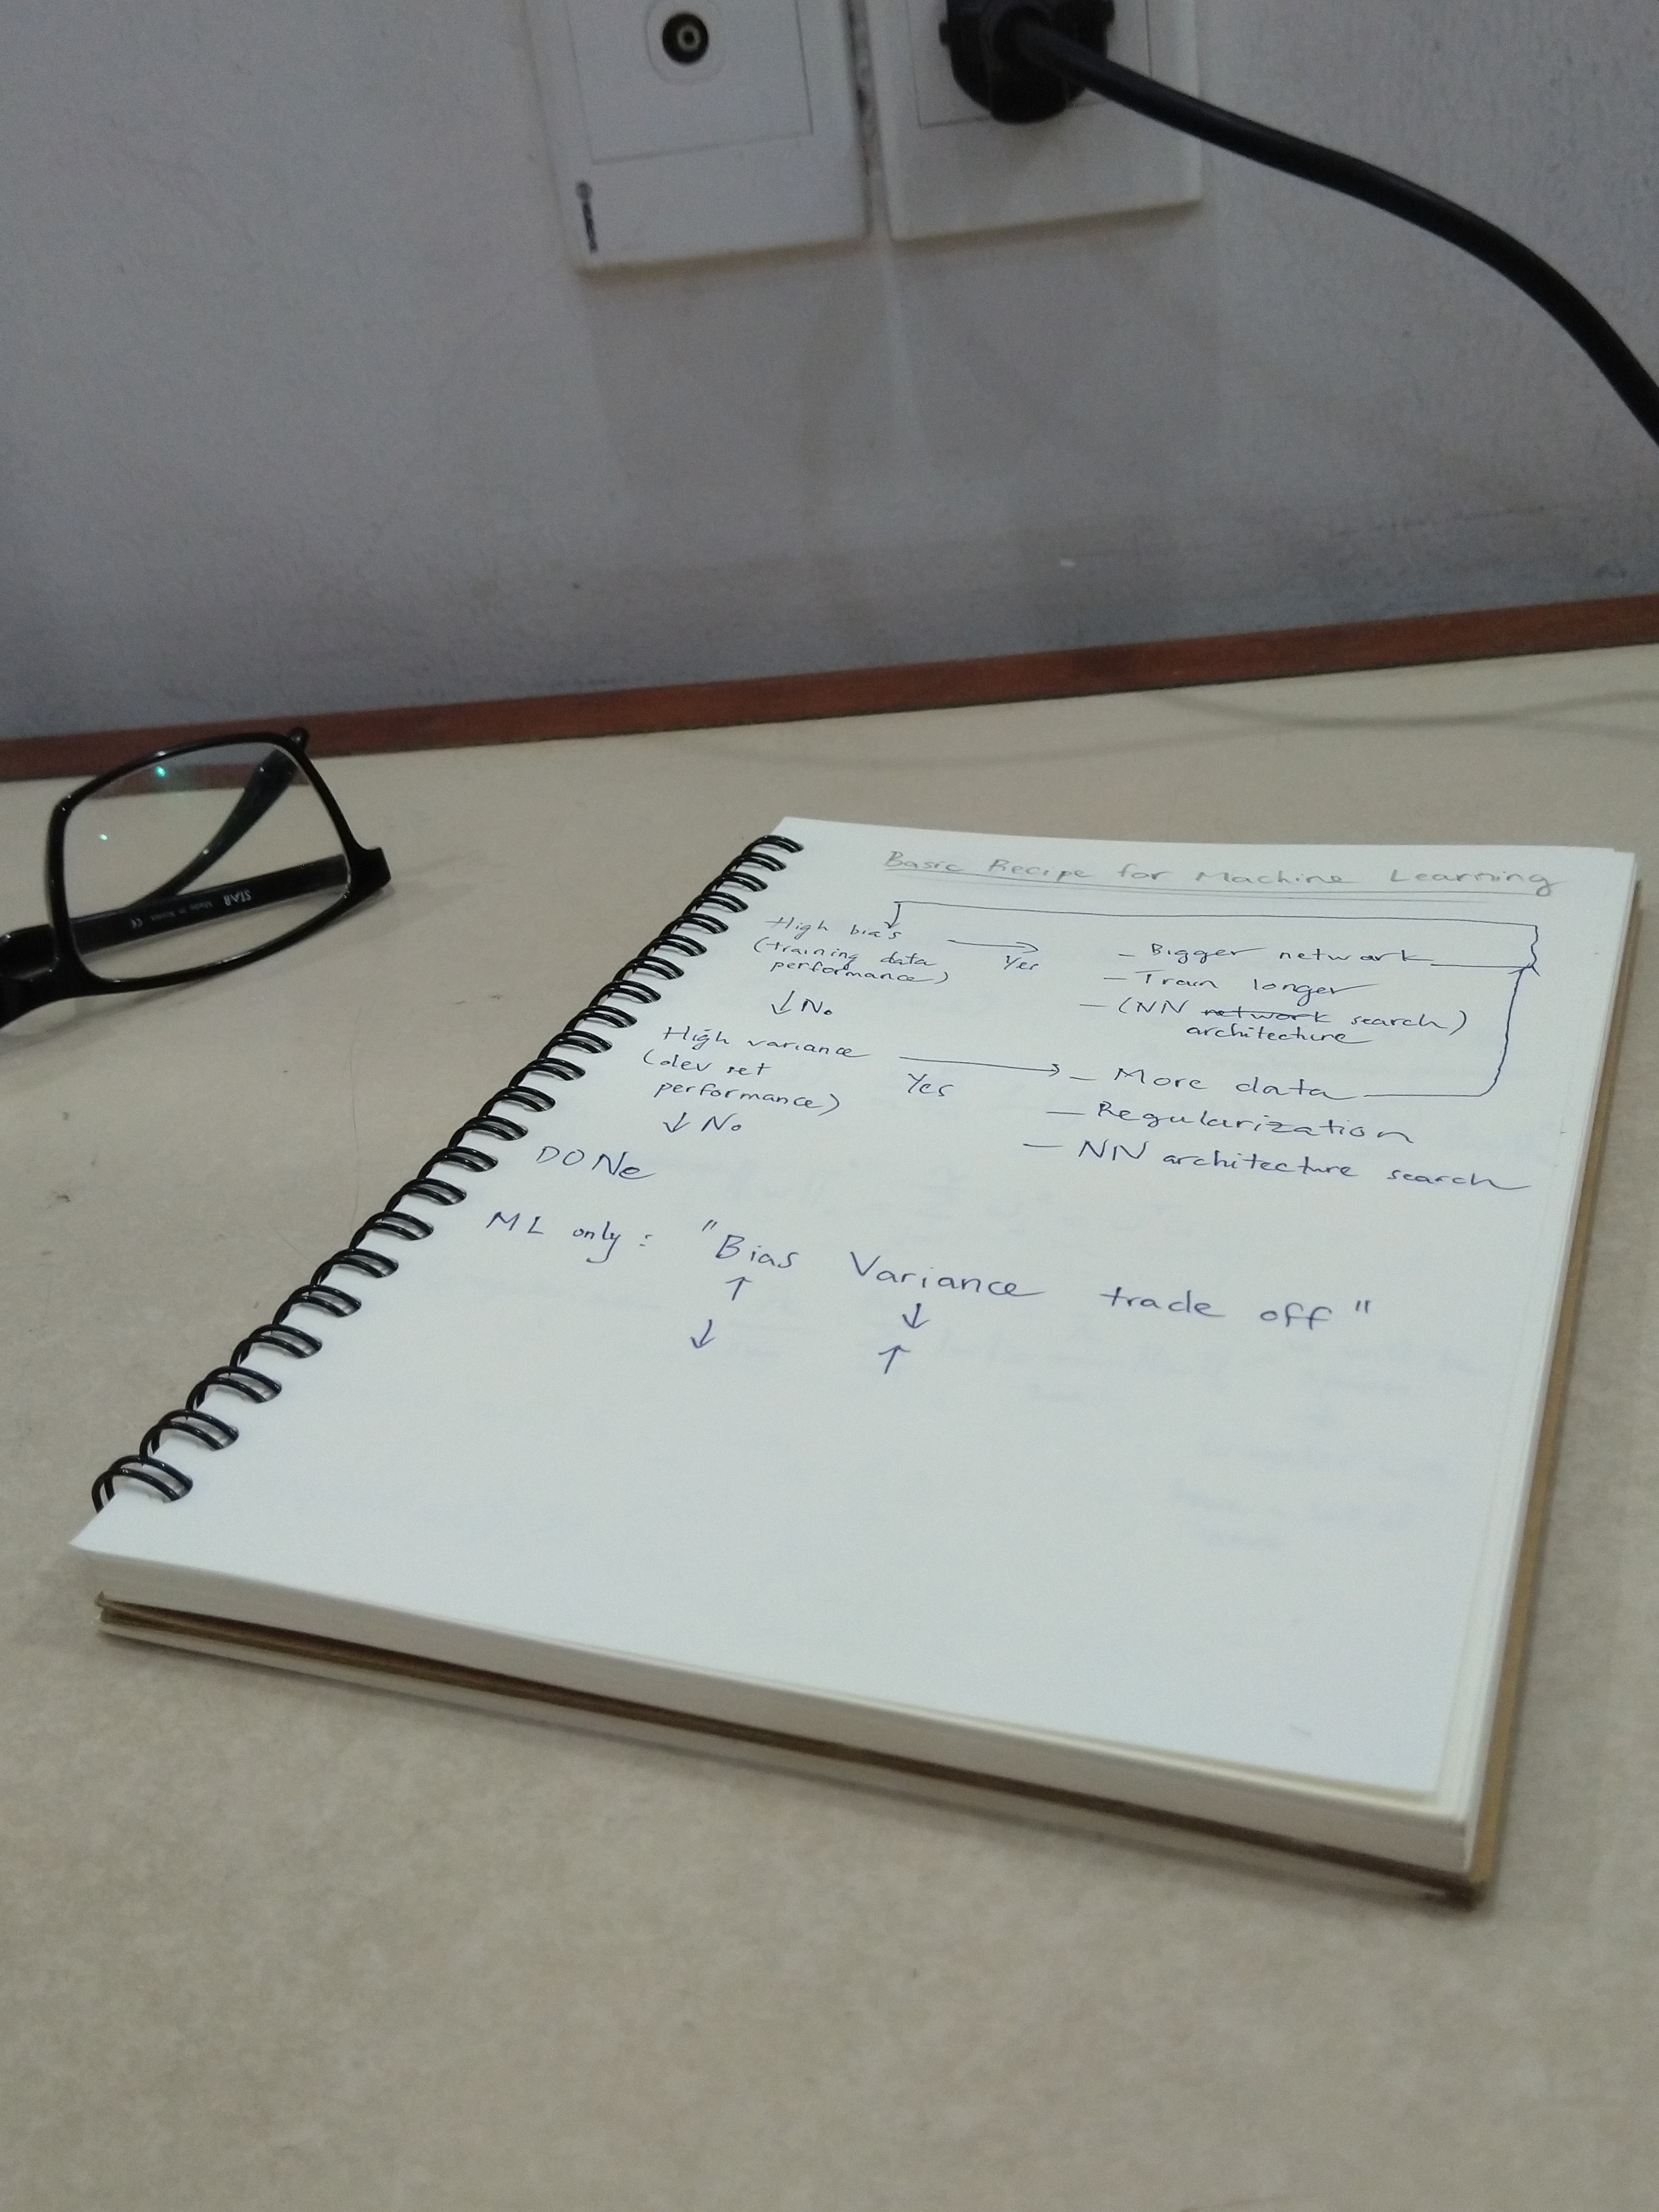 Basic Recipe for Machine Learning
High bias
(training data
performance)
Yes
- Bigger network
- Train longer
- (NN network search)
architecture
↓ No
High variance
(dev set
performance)
Yes
- More data
- Regularization
- NN architecture search
↓ No
DONe
ML only : "Bias Variance trade off"
↑ ↓
↓ ↑
STAR